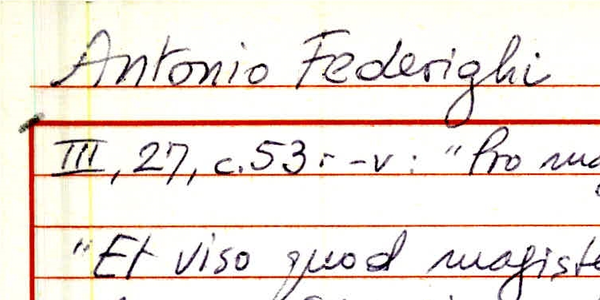 Antonio Federighi
III, 27, c. 53 r - v : "Pro
"Et viso quod